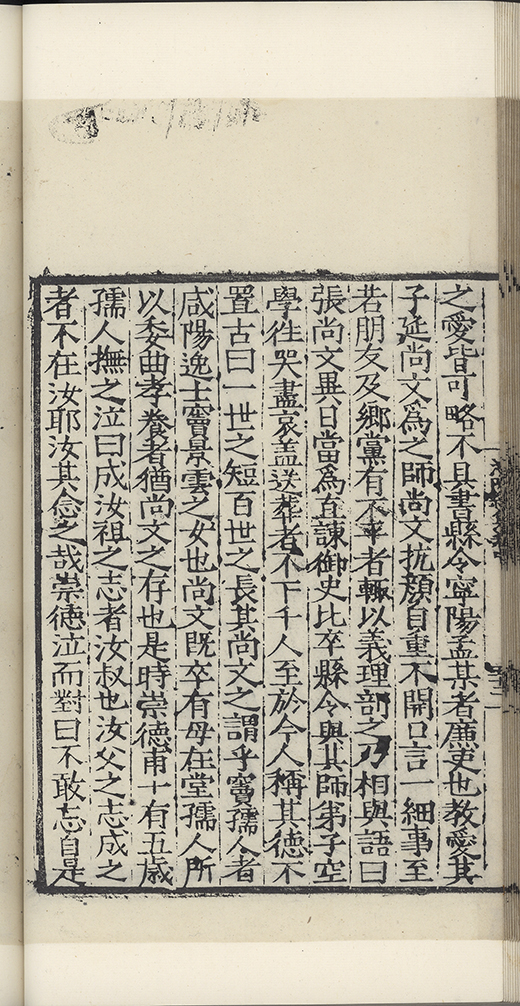 之愛皆可略不具書縣令寧陽孟某者廉吏也教愛其
子延尚文爲之師尚文抗顔自重不開口言一細事至
若朋友及鄉黨有不幸者輙以義理剖之乃相與語曰
張尚文異日當爲直諫御史比卒縣令與其師弟子空
學徃哭盡哀盖送葬者不下千人至於今人稱其德不
置古曰一世之短百世之長其尚文之謂乎竇孺人者
咸陽逸士竇景雲之女也尚文既卒有母在堂孺人所
以委曲孝養者猶尚文之存也是時崇德甫十有五歲
孺人撫之泣曰成汝祖之志者汝叔也汝父之志成之
者不在汝耶汝其念之哉崇德泣而對曰不敢忘自是